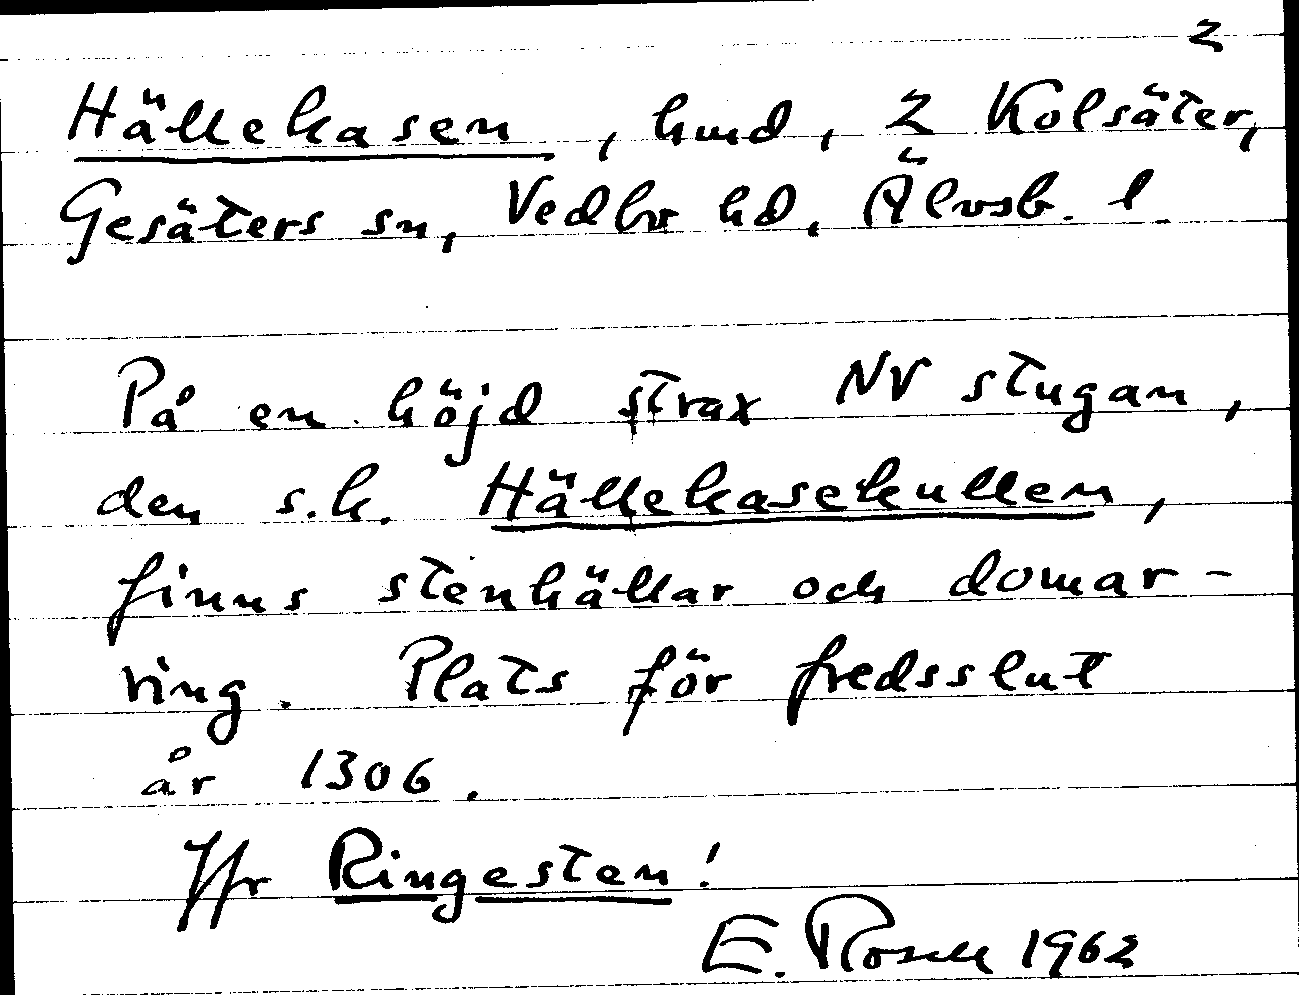 2
Hällekasen, hmd, 2 Kolsäter,
Gesäters sn, Vedbo hd, Älvsb. l.
På en höjd strax NV stugan,
den s.k. Hällekasekullen,
finns stenhällar och domar-
ring. Plats för fredsslut
år 1306.
Jfr Ringesten!
E. Rosell 1962